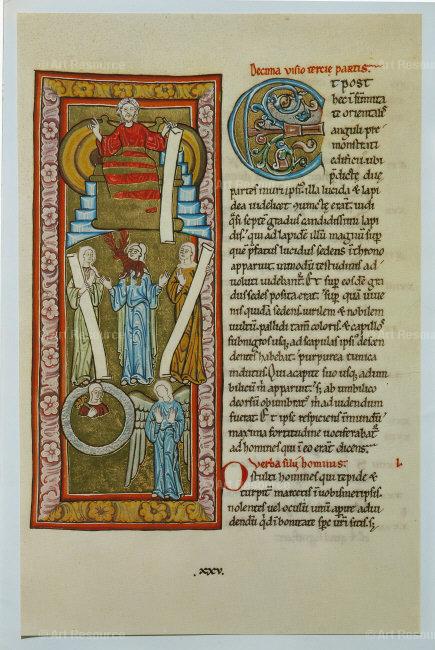 Decima visio tercie partis.
Et post
hec ī summita
te orientalis
anguli pre
monstrati
edificii ubi
p̄dicte due
partes muri ipsiꝰ illa lucida & lapi
dea videlicet ꝯiuncte erant vidi
q̄si septē gradus candidissimi lapi
dis. qui ad lapidē illū magnū sup
quē p̄fatus lucidus sedens ī throno
apparuit inmodū testudinis ad
uoluti videbant᷑. Et sup eosdē gra
dus sedes posita erat. sup quā iuue
nis quidā sedens. uirilem & nobilem
uultū. pallidi tam̄ coloris. & capillos
subnigros usq; ad scapulas ipsiꝰ descen
dentes habebat. purpurea tunica
indutus. Qui a capite suo usq; ad um
bilicū m̄ apparuit. s; ab umbilico
deorsū obumbratꝰ m̄ ad uidendum
fuerat. Et ipse respiciens ī mundū
maxima fortitudine uociferabat᷑
ad homines qui ī eo erāt dicens.
Verba filij hominis. I.
O stulti homines qui tepide &
turpit̄ marcetis ī uobismetipsis.
nolentes uel oculum unū aperire ad ui
dendū qd ī bonitate sp̄c uri sitis. s;
.xxv.
© Art Resource
© Art Resource
© Art Resource
© Art Resource